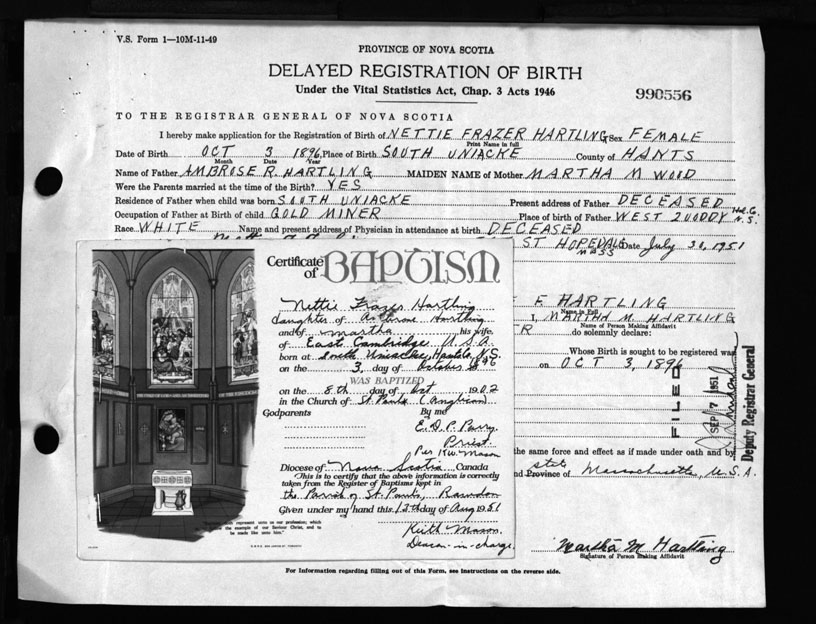 V.S. Form 1—10M-11-49
PROVINCE OF NOVA SCOTIA
DELAYED REGISTRATION OF BIRTH
Under the Vital Statistics Act, Chap. 3 Acts 1946
990556
TO THE REGISTRAR GENERAL OF NOVA SCOTIA
I hereby make application for the Registration of Birth of NETTIE FRAZER HARTLING Sex FEMALE
Print Name in full
Date of Birth OCT 3 1896, Place of Birth SOUTH UNIACKE County of HANTS
Month Date Year
Name of Father AMBROSE R. HARTLING MAIDEN NAME of Mother MARTHA M WOOD
Were the Parents married at the time of the Birth? YES
Residence of Father when child was born SOUTH UNIACKE Present address of Father DECEASED
Occupation of Father at Birth of child GOLD MINER Place of birth of Father WEST QUODDY Hal. Co. N.S.
Race WHITE Name and present address of Physician in attendance at birth DECEASED
ST HOPEDALE MASS Date July 30, 1951
F HARTLING
Name in Full
I, MARTHA M. HARTLING
Name of Person Making Affidavit
do solemnly declare:
Whose Birth is sought to be registered was
on OCT 3, 1896
FILED
SEP 7 1951
Deputy Registrar General
the same force and effect as if made under oath and by
state
and Province of Massachusetts, U.S.A.
Martha M Hartling
Signature of Person Making Affidavit
For Information regarding filling out of this Form, see Instructions on the reverse side.
Certificate of BAPTISM
Nettie Frazer Hartling
daughter of Ambrose Hartling
and of Martha, his wife,
of East Cambridge U.S.A.
born at South Uniacke, Hants Co. N.S.
on the 3, day of October 1896
WAS BAPTIZED
on the 8th day of Oct 1902
in the Church of St. Pauls (Anglican)
Godparents By me
E. D. P. Parry
Priest.
Per K.W. Mason
Diocese of Nova Scotia Canada
This is to certify that the above information is correctly
taken from the Register of Baptisms kept in
the Parish of St. Pauls, Rawdon
Given under my hand this, 13th day of Aug 1951
Keith Mason.
Deacon-in-charge.
represent unto us our profession; which
the example of our Saviour Christ, and to
be made like unto him."